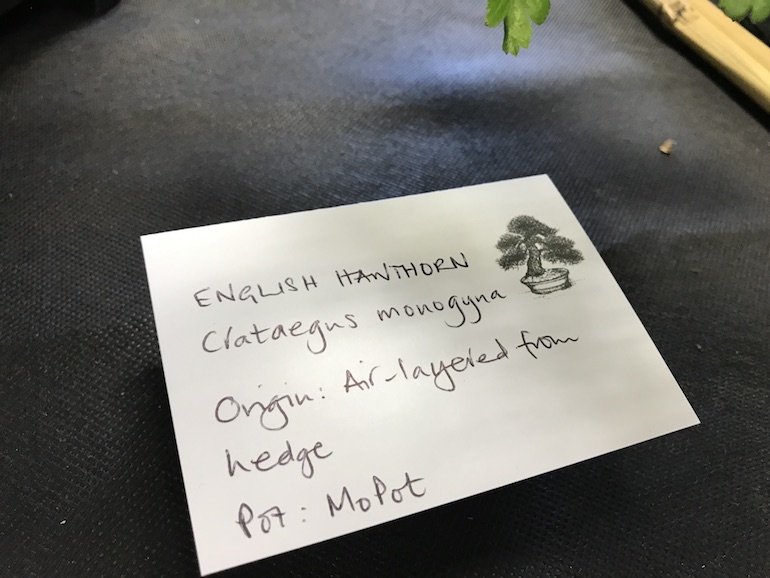 ENGLISH HAWTHORN
Crataegus monogyna
Origin: Air-layered from
hedge
Pot: MoPot